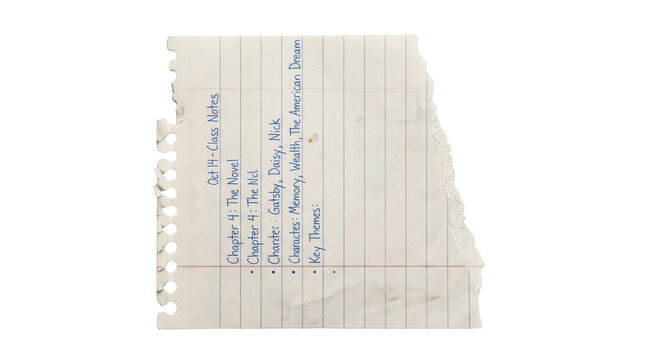 Oct 14 - Class Notes
Chapter 4: The Novel
• Chapter 4: The Nd
• Charater: Gatsby, Daisy, Nick
• Charactes: Memory, Wealth, The American Dream
• Key Themes:
•